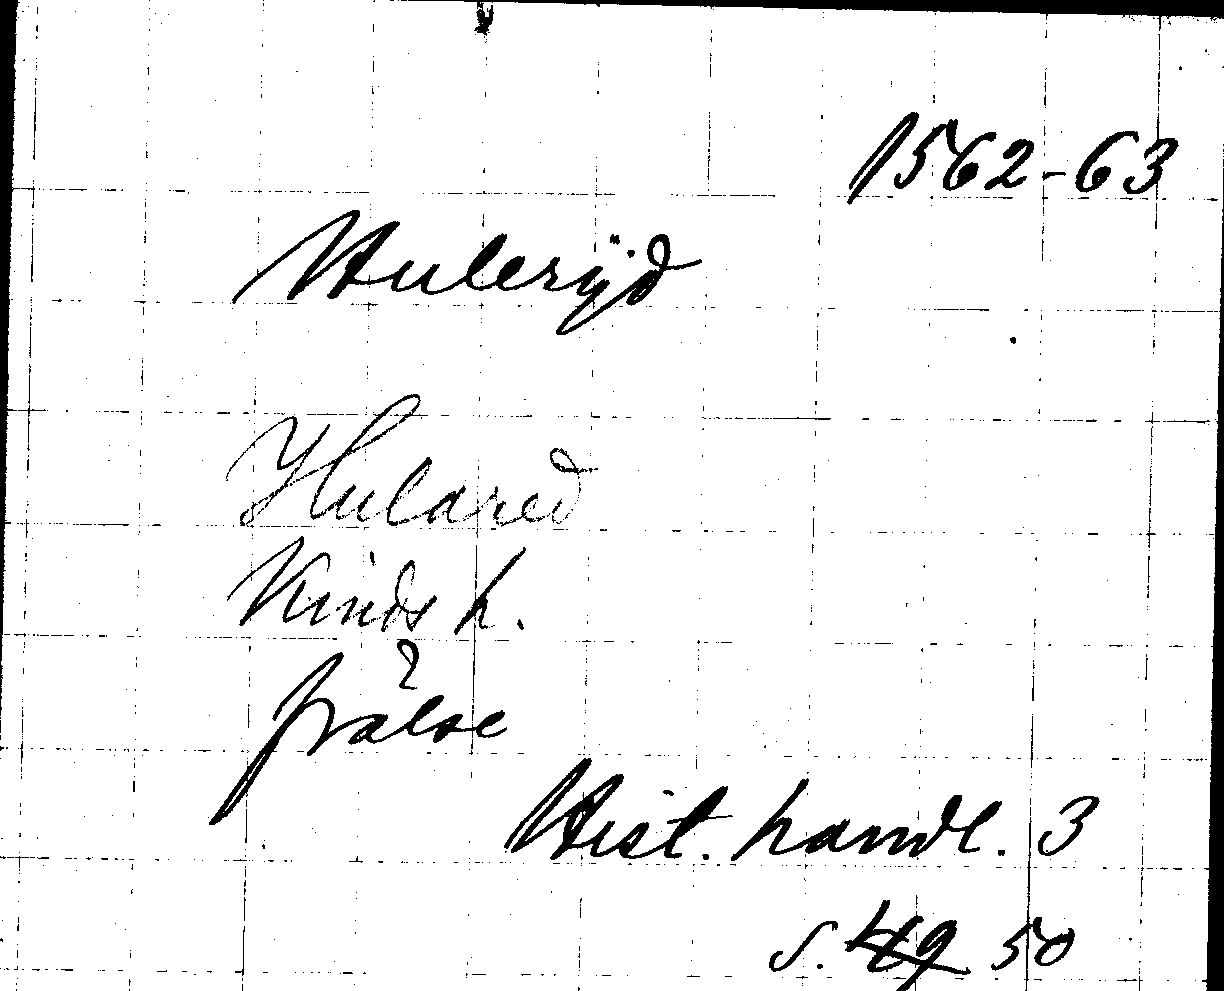 1562-63
Hulerÿd
Hulared
Kinds h.
frälse
Hist. handl. 3
s. 49 50